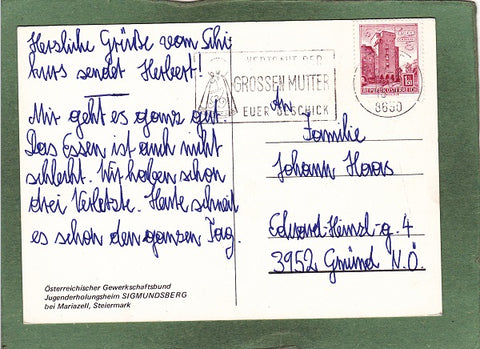 Herzliche Grüße vom Schi-
kurs sendet Herbert!
Mir geht es ganz gut.
Das Essen ist auch nicht
schlecht. Wir haben schon
drei Verletzte. Heute schneit
es schon den ganzen Tag.
Österreichischer Gewerkschaftsbund
Jugenderholungsheim SIGMUNDSBERG
bei Mariazell, Steiermark
VERTRAUT DER
GROSSEN MUTTER
EUER GESCHICK
8630
REPUBLIK ÖSTERREICH
An
Familie
Johann Haas
Eduard-Heinsl-g. 4
3952 Gmünd N.Ö.